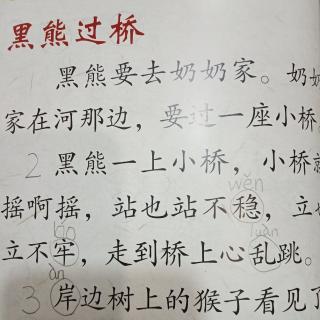 黑熊过桥
1 黑熊要去奶奶家。奶奶
家在河那边，要过一座小桥，
wěn
2 黑熊一上小桥，小桥
摇啊摇，站也站不稳，立也
láo luàn
立不牢，走到桥上心乱跳。
àn
3 岸边树上的猴子看见了